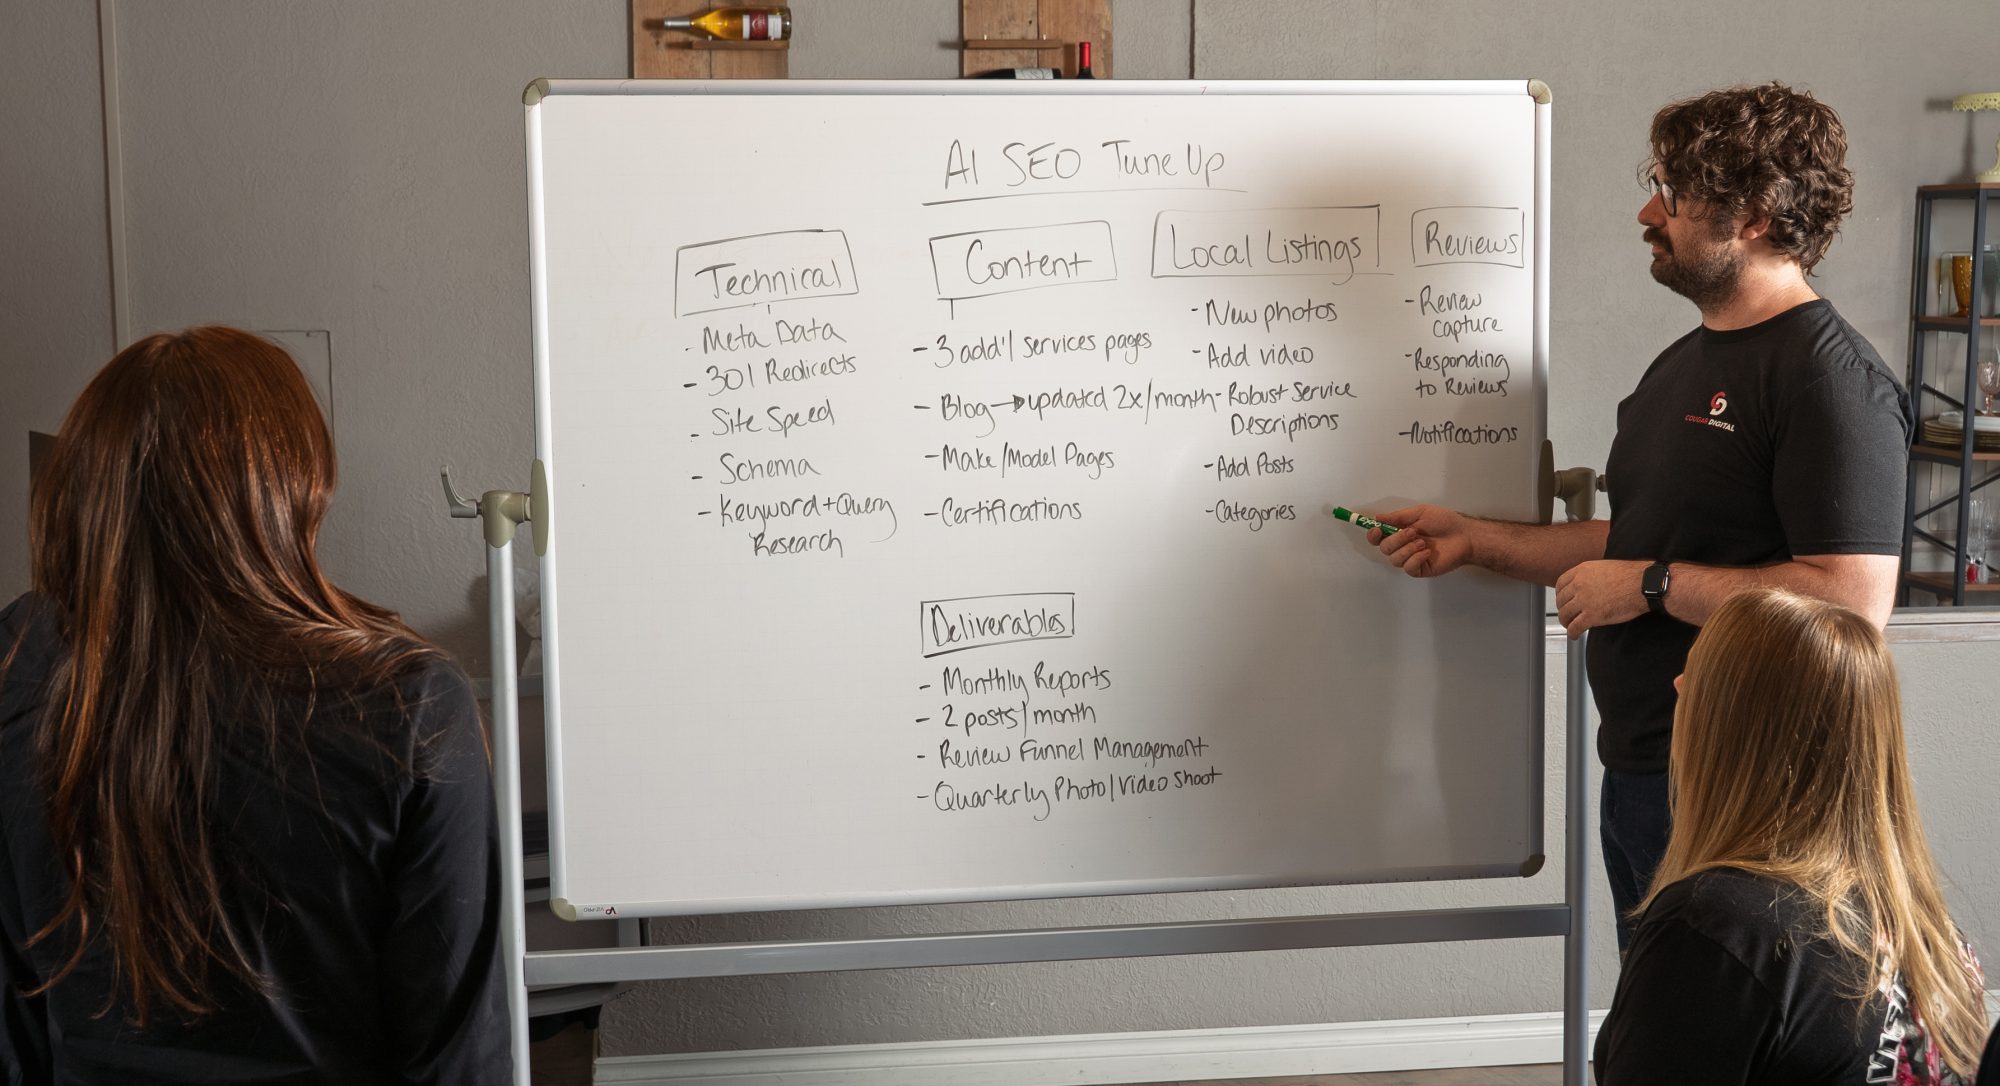 AI SEO Tune Up
Technical
- Meta Data
- 301 Redirects
- Site Speed
- Schema
- Keyword + Query
Research
Content
- 3 add'l services pages
- Blog → updated 2x/month
- Make/Model Pages
- Certifications
Local Listings
- New photos
- Add video
- Robust Service
Descriptions
- Add Posts
- Categories
Reviews
- Review
capture
- Responding
to Reviews
- Notifications
Deliverables
- Monthly Reports
- 2 posts/month
- Review Funnel Management
- Quarterly Photo/Video Shoot
COUGAR DIGITAL
EXPO